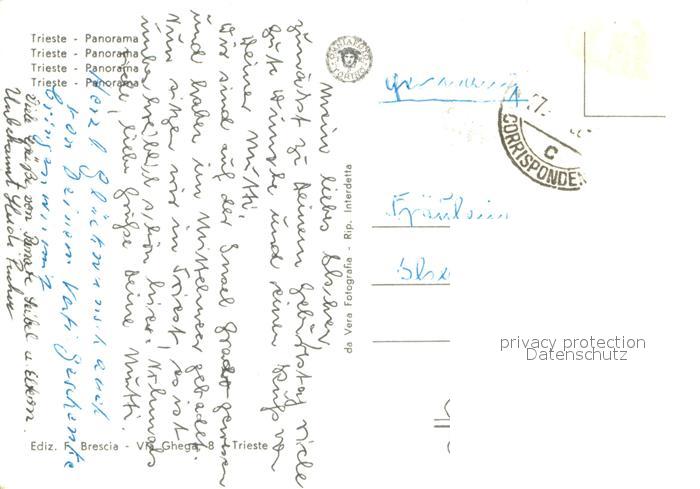 Trieste - Panorama
Trieste - Panorama
Trieste - Panorama
Trieste - Panorama
Mein liebes
zunächst zu Deinem Geburtstag viele
gute Wünsche und einen Kuß von
Deiner Mutti.
Wir sind auf der Insel Grado gewesen
und haben im Mittelmeer gebadet.
Nun sitzen wir in Triest, es ist
schön hier.
liebe Grüße Deine Mutti.
Herzl. Glückwunsch auch
von Deinem Vati Geschenke
bringen wir mit
Viele Grüße von u. Eltern.
Unbekannt
da Vera Fotografia - Rip. Interdetta
Ediz. F. Brescia - Via Ghega, 8 - Trieste
Germania
CORRISPONDEN
C
Fräulein
privacy protection
Datenschutz